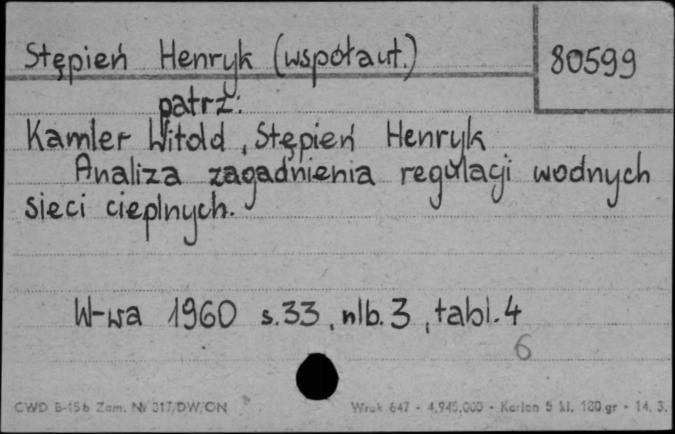 Stępień Henryk (współaut.) 80599
patrz:
Kamler Witold, Stępień Henryk
Analiza zagadnienia regulacji wodnych
sieci cieplnych.
W-wa 1960 s.33, nlb.3, tabl.4
6
CWD B-15b Zam. Nr 317/DW/ON Wrak 647 - 4,945,000 - Karton 5 kl. 180 gr - 14. 3.